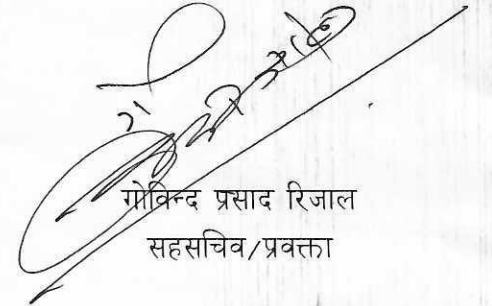 गोविन्द प्रसाद रिजाल
सहसचिव/प्रवक्ता